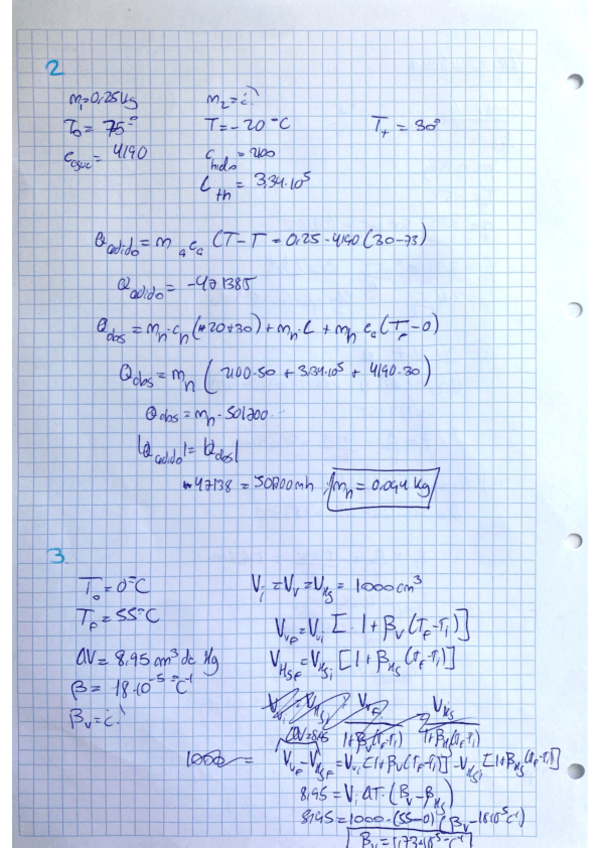 2
m₁=0,25kg m₂=¿?
T₀= 75° T=-20°C T_f = 30°
c_agua= 4190 c_hielo= 2100
L_fh = 3,34·10⁵
Q_cedido = m_a c_a (T-T = 0,25·4190(30-75)
Q_cedido = -47138,5
Q_abs = m_h·c_h(+20+30)+m_h·L+m_h c_a(T_f-0)
Q_abs = m_h (2100·50 + 3,34·10⁵ + 4190·30)
Q_abs = m_h·501200
|Q_cedido|= |Q_abs|
47138 = 501200mh ; m_h = 0,094 kg
3
T₀=0°C V_i = V_v = V_Hg = 1000cm³
T_f=55°C V_vf=V_vi [ 1+β_v(T_f-T_i)]
ΔV= 8,95 cm³ de Hg V_Hgf=V_Hgi [1+β_Hg(T_f-T_i)]
β= 18·10⁻⁵ °C⁻¹
β_v=¿? ΔV=8,95 1+β_v(T_f-T_i) 1+β_Hg(T_f-T_i)
V_vf-V_Hgf=V_vi[1+β_v(T_f-T_i)]-V_Hgi[1+β_Hg(T_f-T_i)]
8,95=V_i·ΔT·(β_v-β_Hg)
8,95=1000·(55-0)(β_v-18·10⁻⁵°C⁻¹)